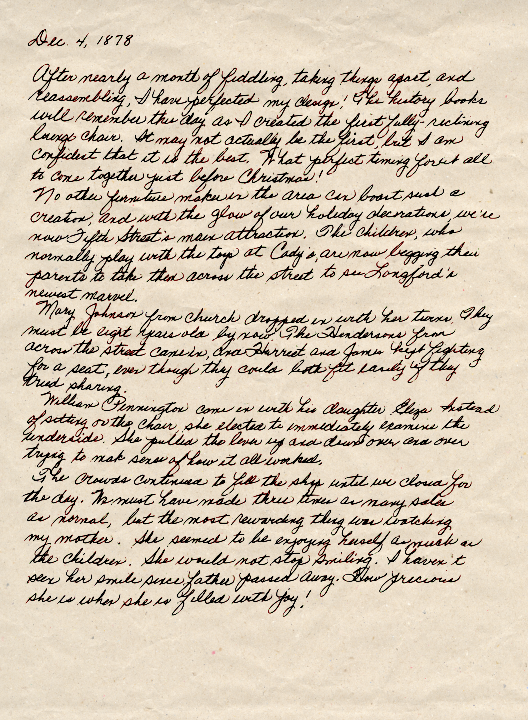 Dec. 4, 1878
After nearly a month of fiddling, taking things apart, and
reassembling, I have perfected my design! The history books
will remember this day as I created the first fully-reclining
lounge chair. It may not actually be the first, but I am
confident that it is the best. What perfect timing for it all
to come together just before Christmas!
No other furniture maker in the area can boast such a
creation, and with the glow of our holiday decorations, we're
now Fifth Street's main attraction. The children, who
normally play with the toys at Cady's, are now begging their
parents to take them across the street to see Longford's
newest marvel.
Mary Johnson from church dropped in with her twins. They
must be eight years old by now. The Hendersons from
across the street came in, and Harriet and James kept fighting
for a seat, even though they could both fit easily if they
tried sharing.
William Pennington came in with his daughter Eliza. Instead
of sitting on the chair, she elected to immediately examine the
underside. She pulled the lever up and down over and over
trying to make sense of how it all worked.
The crowds continued to fill the shop until we closed for
the day. We must have made three times as many sales
as normal, but the most rewarding thing was watching
my mother. She seemed to be enjoying herself as much as
the children. She would not stop smiling. I haven't
seen her smile since father passed away. How precious
she is when she is filled with joy!